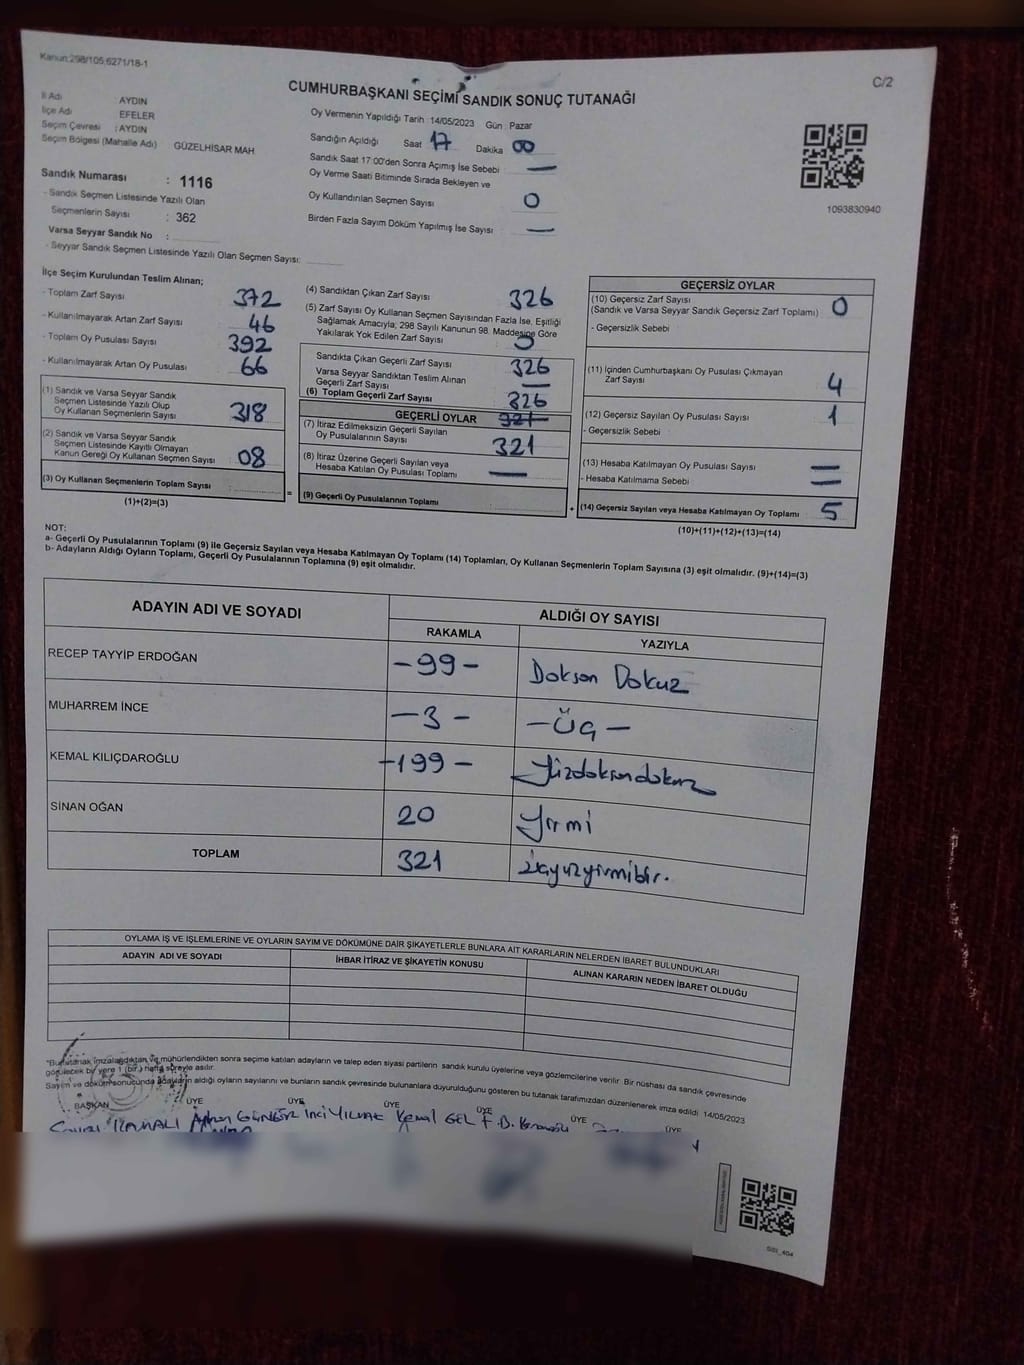 Kanun:298/105,6271/18-1
C/2
CUMHURBAŞKANI SEÇİMİ SANDIK SONUÇ TUTANAĞI
İl Adı : AYDIN
İlçe Adı EFELER
Seçim Çevresi : AYDIN
Seçim Bölgesi (Mahalle Adı) GÜZELHİSAR MAH
Sandık Numarası : 1116
- Sandık Seçmen Listesinde Yazılı Olan
Seçmenlerin Sayısı : 362
Varsa Seyyar Sandık No :
- Seyyar Sandık Seçmen Listesinde Yazılı Olan Seçmen Sayısı:
Oy Vermenin Yapıldığı Tarih : 14/05/2023 Gün : Pazar
Sandığın Açıldığı Saat 17 Dakika 00
Sandık Saat 17:00'den Sonra Açımış İse Sebebi —
Oy Verme Saati Bitiminde Sırada Bekleyen ve
Oy Kullandırılan Seçmen Sayısı 0
Birden Fazla Sayım Döküm Yapılmış İse Sayısı —
1093830940
İlçe Seçim Kurulundan Teslim Alınan;
- Toplam Zarf Sayısı 372
- Kullanılmayarak Artan Zarf Sayısı 46
- Toplam Oy Pusulası Sayısı 392
- Kullanılmayarak Artan Oy Pusulası 66
(1) Sandık ve Varsa Seyyar Sandık
Seçmen Listesinde Yazılı Olup
Oy Kullanan Seçmenlerin Sayısı 318
(2) Sandık ve Varsa Seyyar Sandık
Seçmen Listesinde Kayıtlı Olmayan
Kanun Gereği Oy Kullanan Seçmen Sayısı 08
(3) Oy Kullanan Seçmenlerin Toplam Sayısı
(1)+(2)=(3)
=
(4) Sandıktan Çıkan Zarf Sayısı 326
(5) Zarf Sayısı Oy Kullanan Seçmen Sayısından Fazla İse, Eşitliği
Sağlamak Amacıyla, 298 Sayılı Kanunun 98. Maddesine Göre
Yakılarak Yok Edilen Zarf Sayısı
Sandıkta Çıkan Geçerli Zarf Sayısı 326
Varsa Seyyar Sandıktan Teslim Alınan
Geçerli Zarf Sayısı —
(6) Toplam Geçerli Zarf Sayısı 326
GEÇERLİ OYLAR 321
(7) İtiraz Edilmeksizin Geçerli Sayılan
Oy Pusulalarının Sayısı 321
(8) İtiraz Üzerine Geçerli Sayılan veya
Hesaba Katılan Oy Pusulası Toplamı —
(9) Geçerli Oy Pusulalarının Toplamı
+
GEÇERSİZ OYLAR
(10) Geçersiz Zarf Sayısı
(Sandık ve Varsa Seyyar Sandık Geçersiz Zarf Toplamı) 0
- Geçersizlik Sebebi
(11) İçinden Cumhurbaşkanı Oy Pusulası Çıkmayan
Zarf Sayısı 4
(12) Geçersiz Sayılan Oy Pusulası Sayısı 1
- Geçersizlik Sebebi
(13) Hesaba Katılmayan Oy Pusulası Sayısı —
- Hesaba Katılmama Sebebi —
(14) Geçersiz Sayılan veya Hesaba Katılmayan Oy Toplamı 5
(10)+(11)+(12)+(13)=(14)
NOT:
a- Geçerli Oy Pusulalarının Toplamı (9) ile Geçersiz Sayılan veya Hesaba Katılmayan Oy Toplamı (14) Toplamları, Oy Kullanan Seçmenlerin Toplam Sayısına (3) eşit olmalıdır. (9)+(14)=(3)
b- Adayların Aldığı Oyların Toplamı, Geçerli Oy Pusulalarının Toplamına (9) eşit olmalıdır.
ADAYIN ADI VE SOYADI
ALDIĞI OY SAYISI
RAKAMLA YAZIYLA
RECEP TAYYİP ERDOĞAN -99- Doksan Dokuz
MUHARREM İNCE -3- -Üç-
KEMAL KILIÇDAROĞLU -199- Yüzdoksandokuz
SİNAN OĞAN 20 Yirmi
TOPLAM 321 üçyüzyirmibir.
OYLAMA İŞ VE İŞLEMLERİNE VE OYLARIN SAYIM VE DÖKÜMÜNE DAİR ŞİKAYETLERLE BUNLARA AİT KARARLARIN NELERDEN İBARET BULUNDUKLARI
ADAYIN ADI VE SOYADI İHBAR İTİRAZ VE ŞİKAYETİN KONUSU ALINAN KARARIN NEDEN İBARET OLDUĞU
*Bu tutanak imzalandıktan ve mühürlendikten sonra seçime katılan adayların ve talep eden siyasi partilerin sandık kurulu üyelerine veya gözlemcilerine verilir. Bir nüshası da sandık çevresinde
görülecek bir yere 1 (bir) hafta süreyle asılır.
Sayım ve döküm sonucunda adayların aldığı oyların sayılarını ve bunların sandık çevresinde bulunanlara duyurulduğunu gösteren bu tutanak tarafımızdan düzenlenerek imza edildi 14/05/2023
BAŞKAN ÜYE ÜYE ÜYE ÜYE ÜYE ÜYE
Ayhan GÜNGÖR İnci YILMAZ Kemal GEL
SSI_404